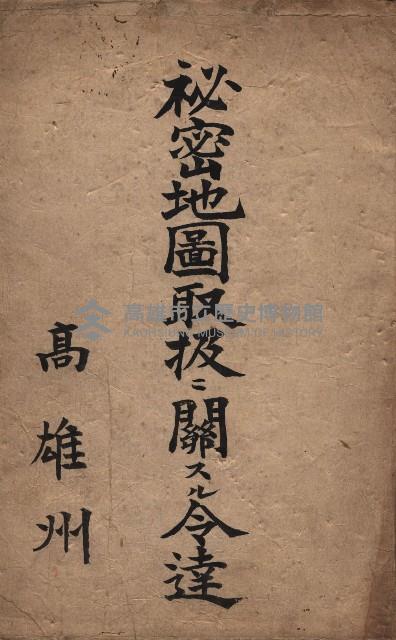 祕密地圖取扱ニ關スル令達
高雄州
高雄市立歷史博物館
KAOHSIUNG MUSEUM OF HISTORY